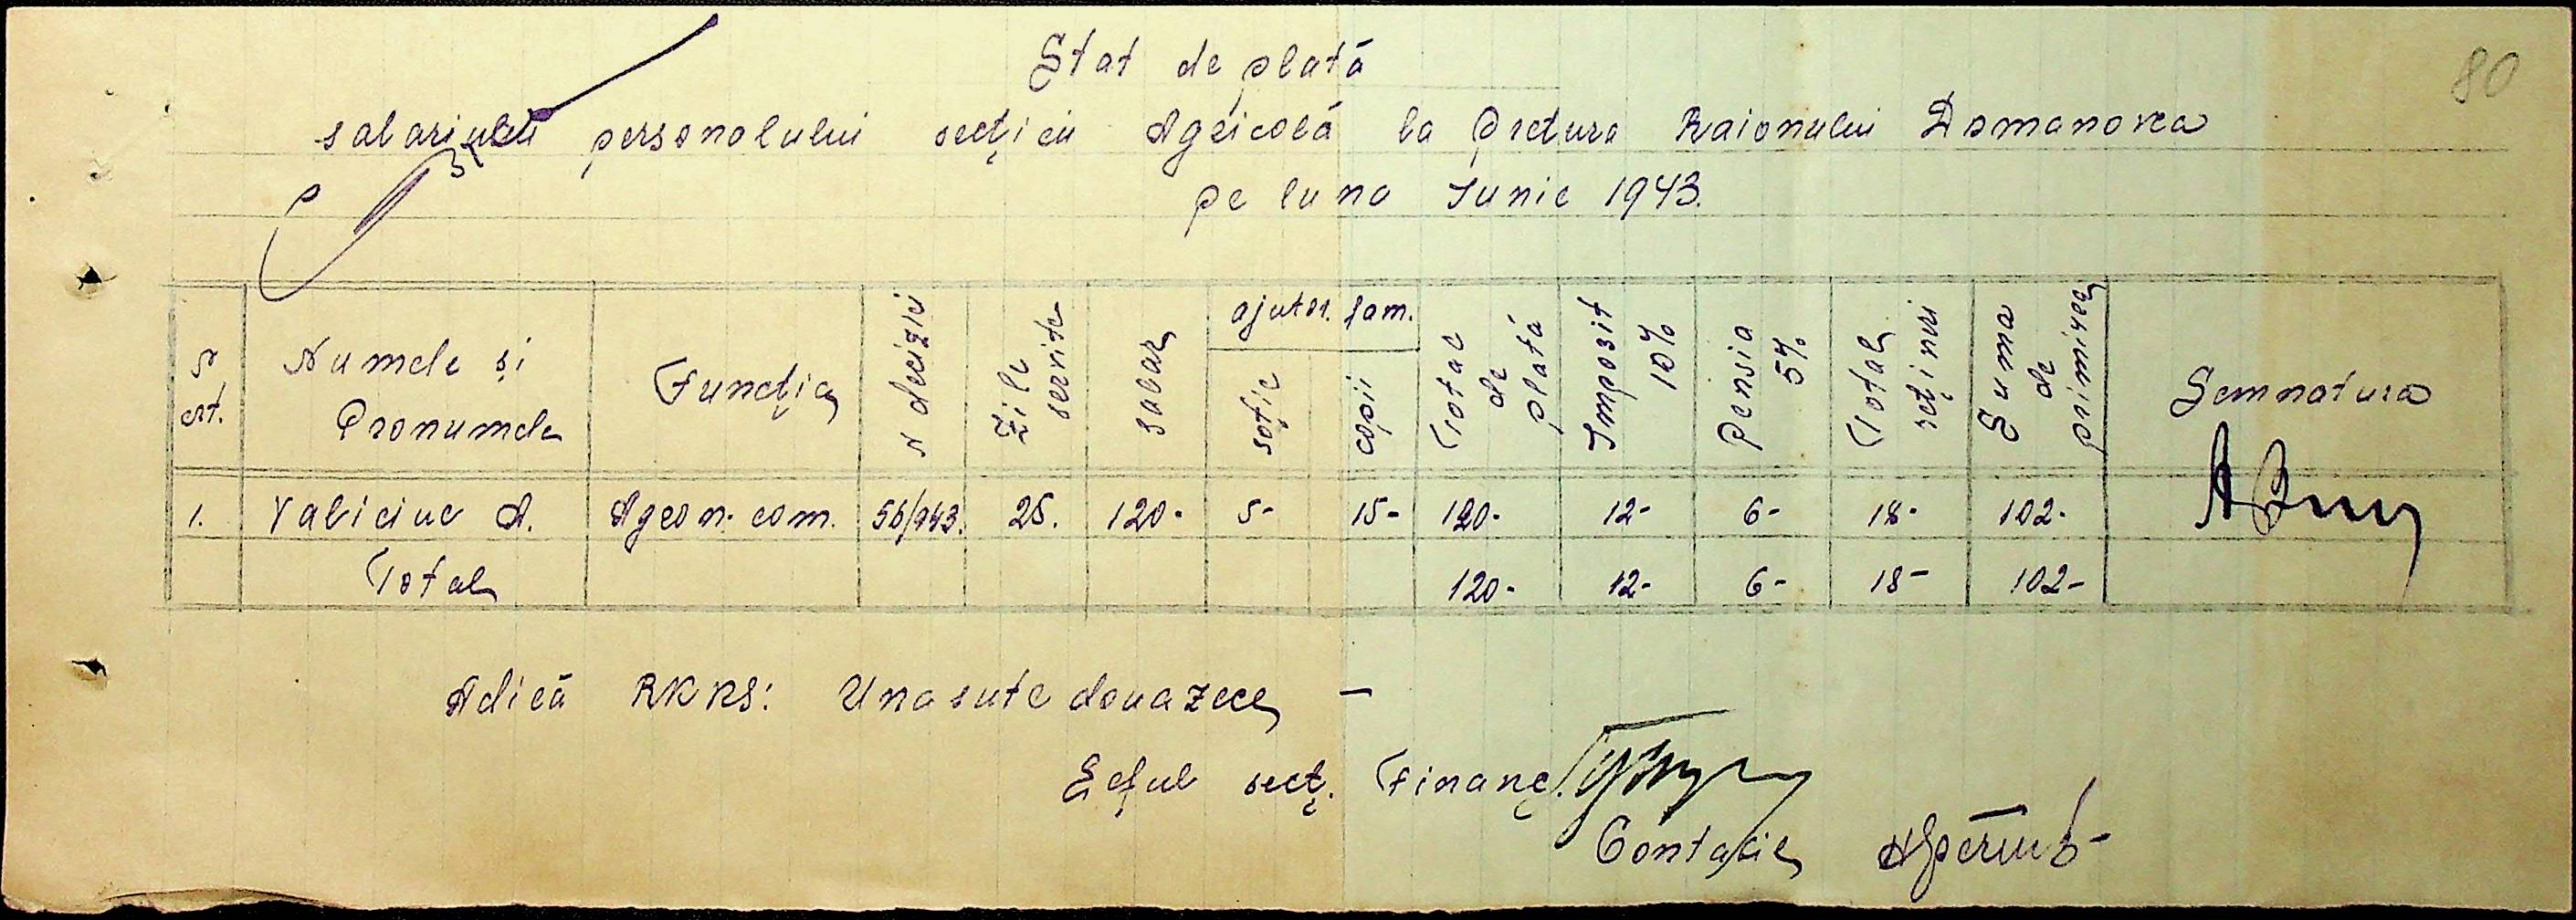 80
Stat de plată
salariului personalului secţiei Agricolă la Pretura Raionului Domanovca
pe luna Iunie 1943.
N crt. Numele și Pronumele Funcţia N deciziei Zile servite salar ajutor. fam. soţie copii Total de plată Imposit 10% Pensia 5% Total reţineri Suma de primirea Semnatura
1. Valiciuc A. Agron. com. 56/943. 25. 120- 5- 15- 120- 12- 6- 18- 102-
Total 120- 12- 6- 18- 102-
Adică RKKS: Una sute douazece —
Șeful secţ. Financ.
Contabil